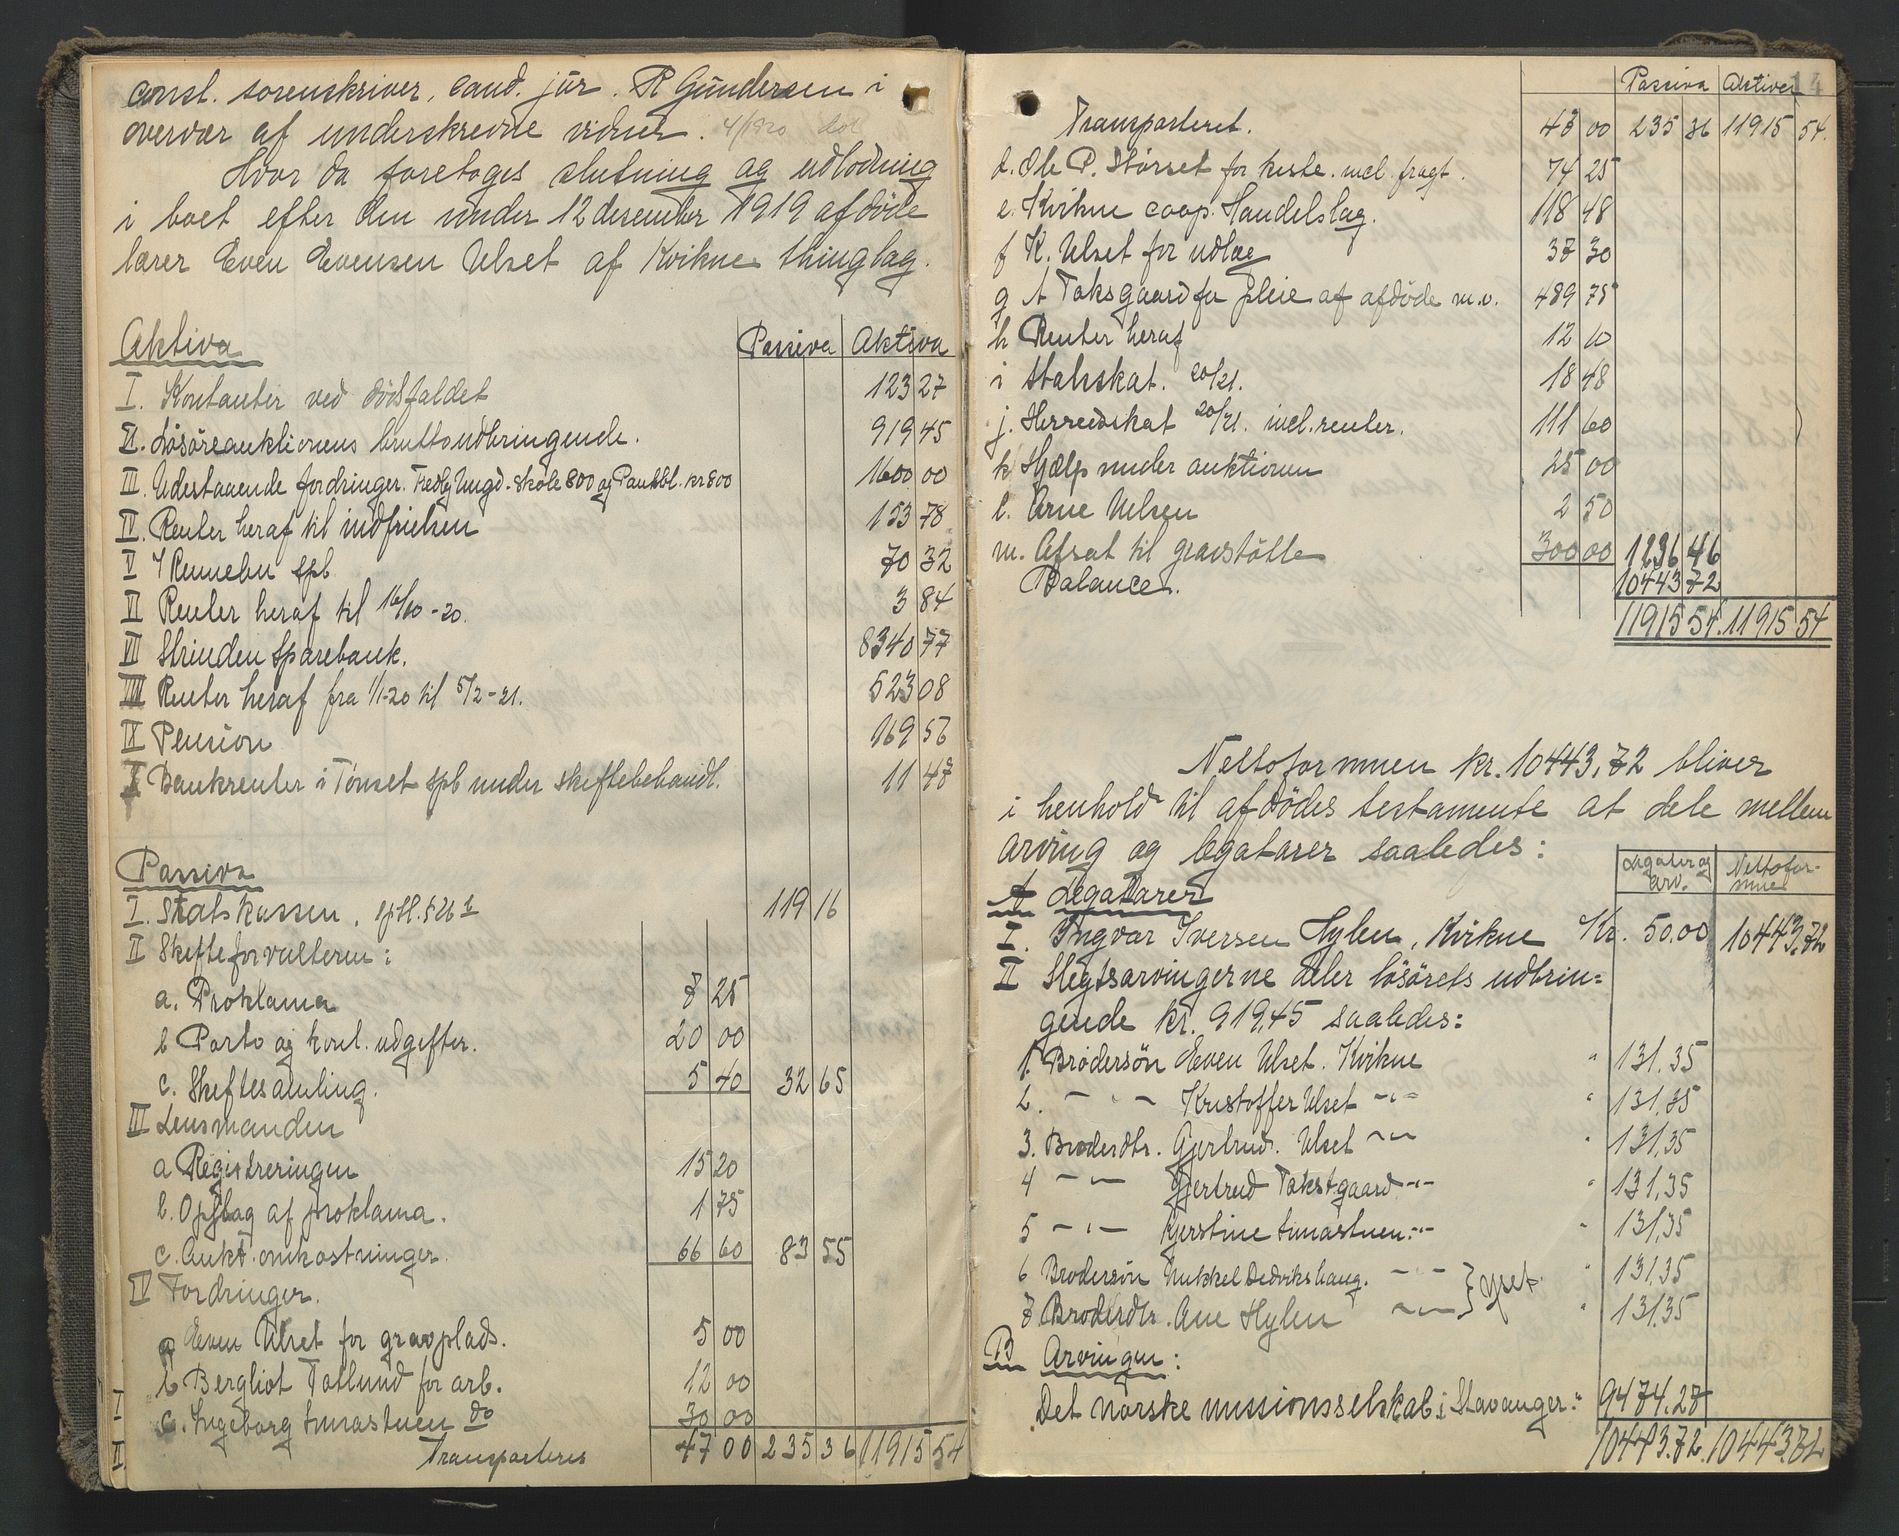 const. sorenskriver, cand. jur. R Gundersen i
overvær af underskrevne vidner.
Hvor da foretoges slutning og udlodning
i boet efter den under 12 desember 1919 afdøde
lærer Even Evensen Ulset af Kvikne thinglag.
Aktiva Passiva Aktiva
I. Kontanter ved dødsfaldet 123 27
II. Løsøreauktionens bruttoudbringende. 919 45
III. Udestaaende fordringer. Fredly Ungd. skole 800 og Pantobl. kr 800 1600 00
IV Renter heraf til indfrielsen 153 78
V I Rennebu spb 70 32
VI Renter heraf til 16/10-20. 3 84
VII Strinden Sparebank. 8340 77
VIII Renter heraf fra 1/1-20 til 5/2-21. 523 08
IX Pension 169 56
X Bankrenter i Tønset spb under skiftebehandl. 11 47
Passiva
I. Statskassen, sptl. § 26 119 16
II Skifteforvalteren:
a. Proklama 7 25
b Porto og kont. udgifter. 20 00
c. Skiftesamling. 5 40 32 65
III Lensmanden
a Registreringen 15 20
b. Opslag af proklama. 1 75
c. Aukt. omkostninger. 66 60 83 55
IV Fordringer.
a Even Ulset for gravplads. 5 00
b Bergliot Totlund for arb. 12 00
c. Ingeborg Limastuen do 30 00
Transporteres 47 00 235 36 11915 54
Passiva Aktiva 14
Transporteret. 47 00 235 36 11915 54.
d. Ole P. Størset for kiste. incl. fragt. 74 25
e. Kvikne coop. Handelslag. 118 48
f K. Ulset for udlæg 37 30
g A Taksgaard for pleie af afdøde m.v. 489 75
h Renter heraf 12 10
i Statsskat. 20/21. 18 48
j. Herredskat 20/21. incl. renter. 111 60
k Hjælp under auktionen 25 00
l. Arne Uelsen 2 50
m. Afsat til gravstøtte 300 00 1236 46
Balance. 10443 72
11915 54. 11915 54
Nettoformuen kr. 10443,72 bliver
i henhold til afdødes testamente at dele mellem
arving og legatarer saaledes:
Legater og arv. Nettoformue
A Legatarer
I. Ingvar Iversen Hylen, Kvikne Kr. 50.00 10443,72
II Slegtsarvingerne deler løsørets udbrin=
gende kr. 919,45 saaledes:
1. Brodersøn Even Ulset. Kvikne " 131,35
2. - " - Kristoffer Ulset - " - " 131,35
3. Broderdtr. Gjertrud. Ulset - " - " 131,35
4 - " - Gjertrud Takstgaard - " - " 131,35
5 - " - Kjerstine Limastuen - " - " 131,35
6 Brodersøn Mikkel Dedvikshaug. - " - " 131,35
7 Broderdtr. Ane Hylen - " - } Yset. " 131,35
B Arvingen:
Det norske missionsselskab i Stavanger: " 9474.27
10443.72. 10443.72